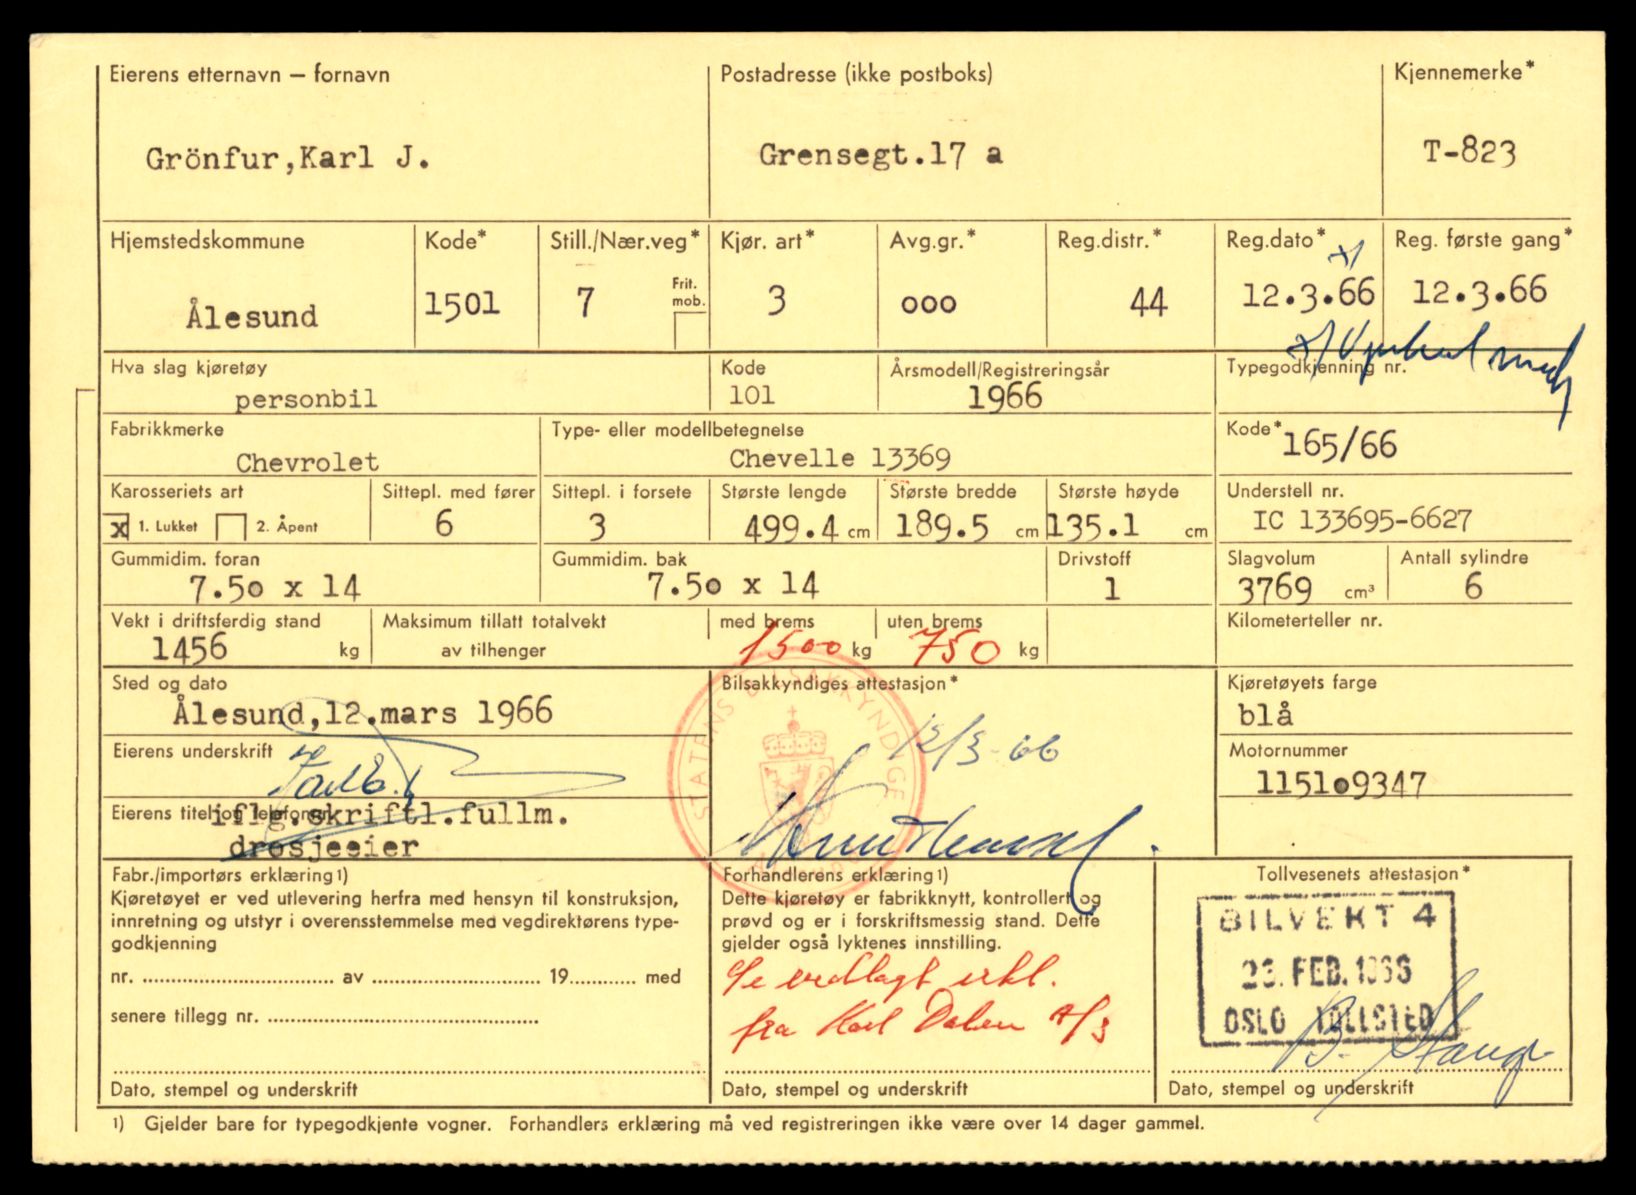 Eierens etternavn – fornavn
Postadresse (ikke postboks)
Kjennemerke*
Grönfur,Karl J.
Grensegt.17 a
T-823
Hjemstedskommune
Kode*
Still./Nær.veg*
Kjør. art*
Avg.gr.*
Reg.distr.*
Reg.dato*
Reg. første gang*
Ålesund
1501
7
Frit. mob.
3
ooo
44
12.3.66
12.3.66
Hva slag kjøretøy
Kode
Årsmodell/Registreringsår
Typegodkjenning nr.
personbil
101
1966
Fabrikkmerke
Type- eller modellbetegnelse
Kode*
Chevrolet
Chevelle 13369
165/66
Karosseriets art
Sittepl. med fører
Sittepl. i forsete
Største lengde
Største bredde
Største høyde
Understell nr.
x 1. Lukket
2. Åpent
6
3
499.4 cm
189.5 cm
135.1 cm
IC 133695-6627
Gummidim. foran
Gummidim. bak
Drivstoff
Slagvolum
Antall sylindre
7.50 x 14
7.50 x 14
1
3769 cm³
6
Vekt i driftsferdig stand
Maksimum tillatt totalvekt
med brems
uten brems
Kilometerteller nr.
1456 kg
av tilhenger
1500 kg
750 kg
Sted og dato
Bilsakkyndiges attestasjon*
Kjøretøyets farge
Ålesund,12.mars 1966
blå
STATENS BILSAKKYNDIGE
12/3-66
Eierens underskrift
Motornummer
115109347
Eierens titel og telefonnr.
iflg.skriftl.fullm.
drosjeeier
Fabr./importørs erklæring 1)
Kjøretøyet er ved utlevering herfra med hensyn til konstruksjon,
innretning og utstyr i overensstemmelse med vegdirektørens type-
godkjenning
nr. ........ av ........ 19........ med
senere tillegg nr. ........
Dato, stempel og underskrift
Forhandlerens erklæring 1)
Dette kjøretøy er fabrikknytt, kontrollert og
prøvd og er i forskriftsmessig stand. Dette
gjelder også lyktenes innstilling.
Se vedlagt erkl.
fra Karl Dalen A/S
Dato, stempel og underskrift
Tollvesenets attestasjon*
BILVEKT 4
23. FEB. 1966
OSLO TOLLSTED
Dato, stempel og underskrift
1) Gjelder bare for typegodkjente vogner. Forhandlers erklæring må ved registreringen ikke være over 14 dager gammel.